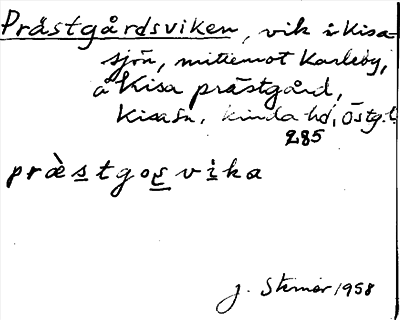 Prästgårdsviken, vik i Kisa-
sjön, mittemot Karleby,
å Kisa prästgård,
Kisa sn, Kinda hd, Östg.l.
285
præ̀s̲tgoṣ̲vi̲ka
J. Stemør 1958